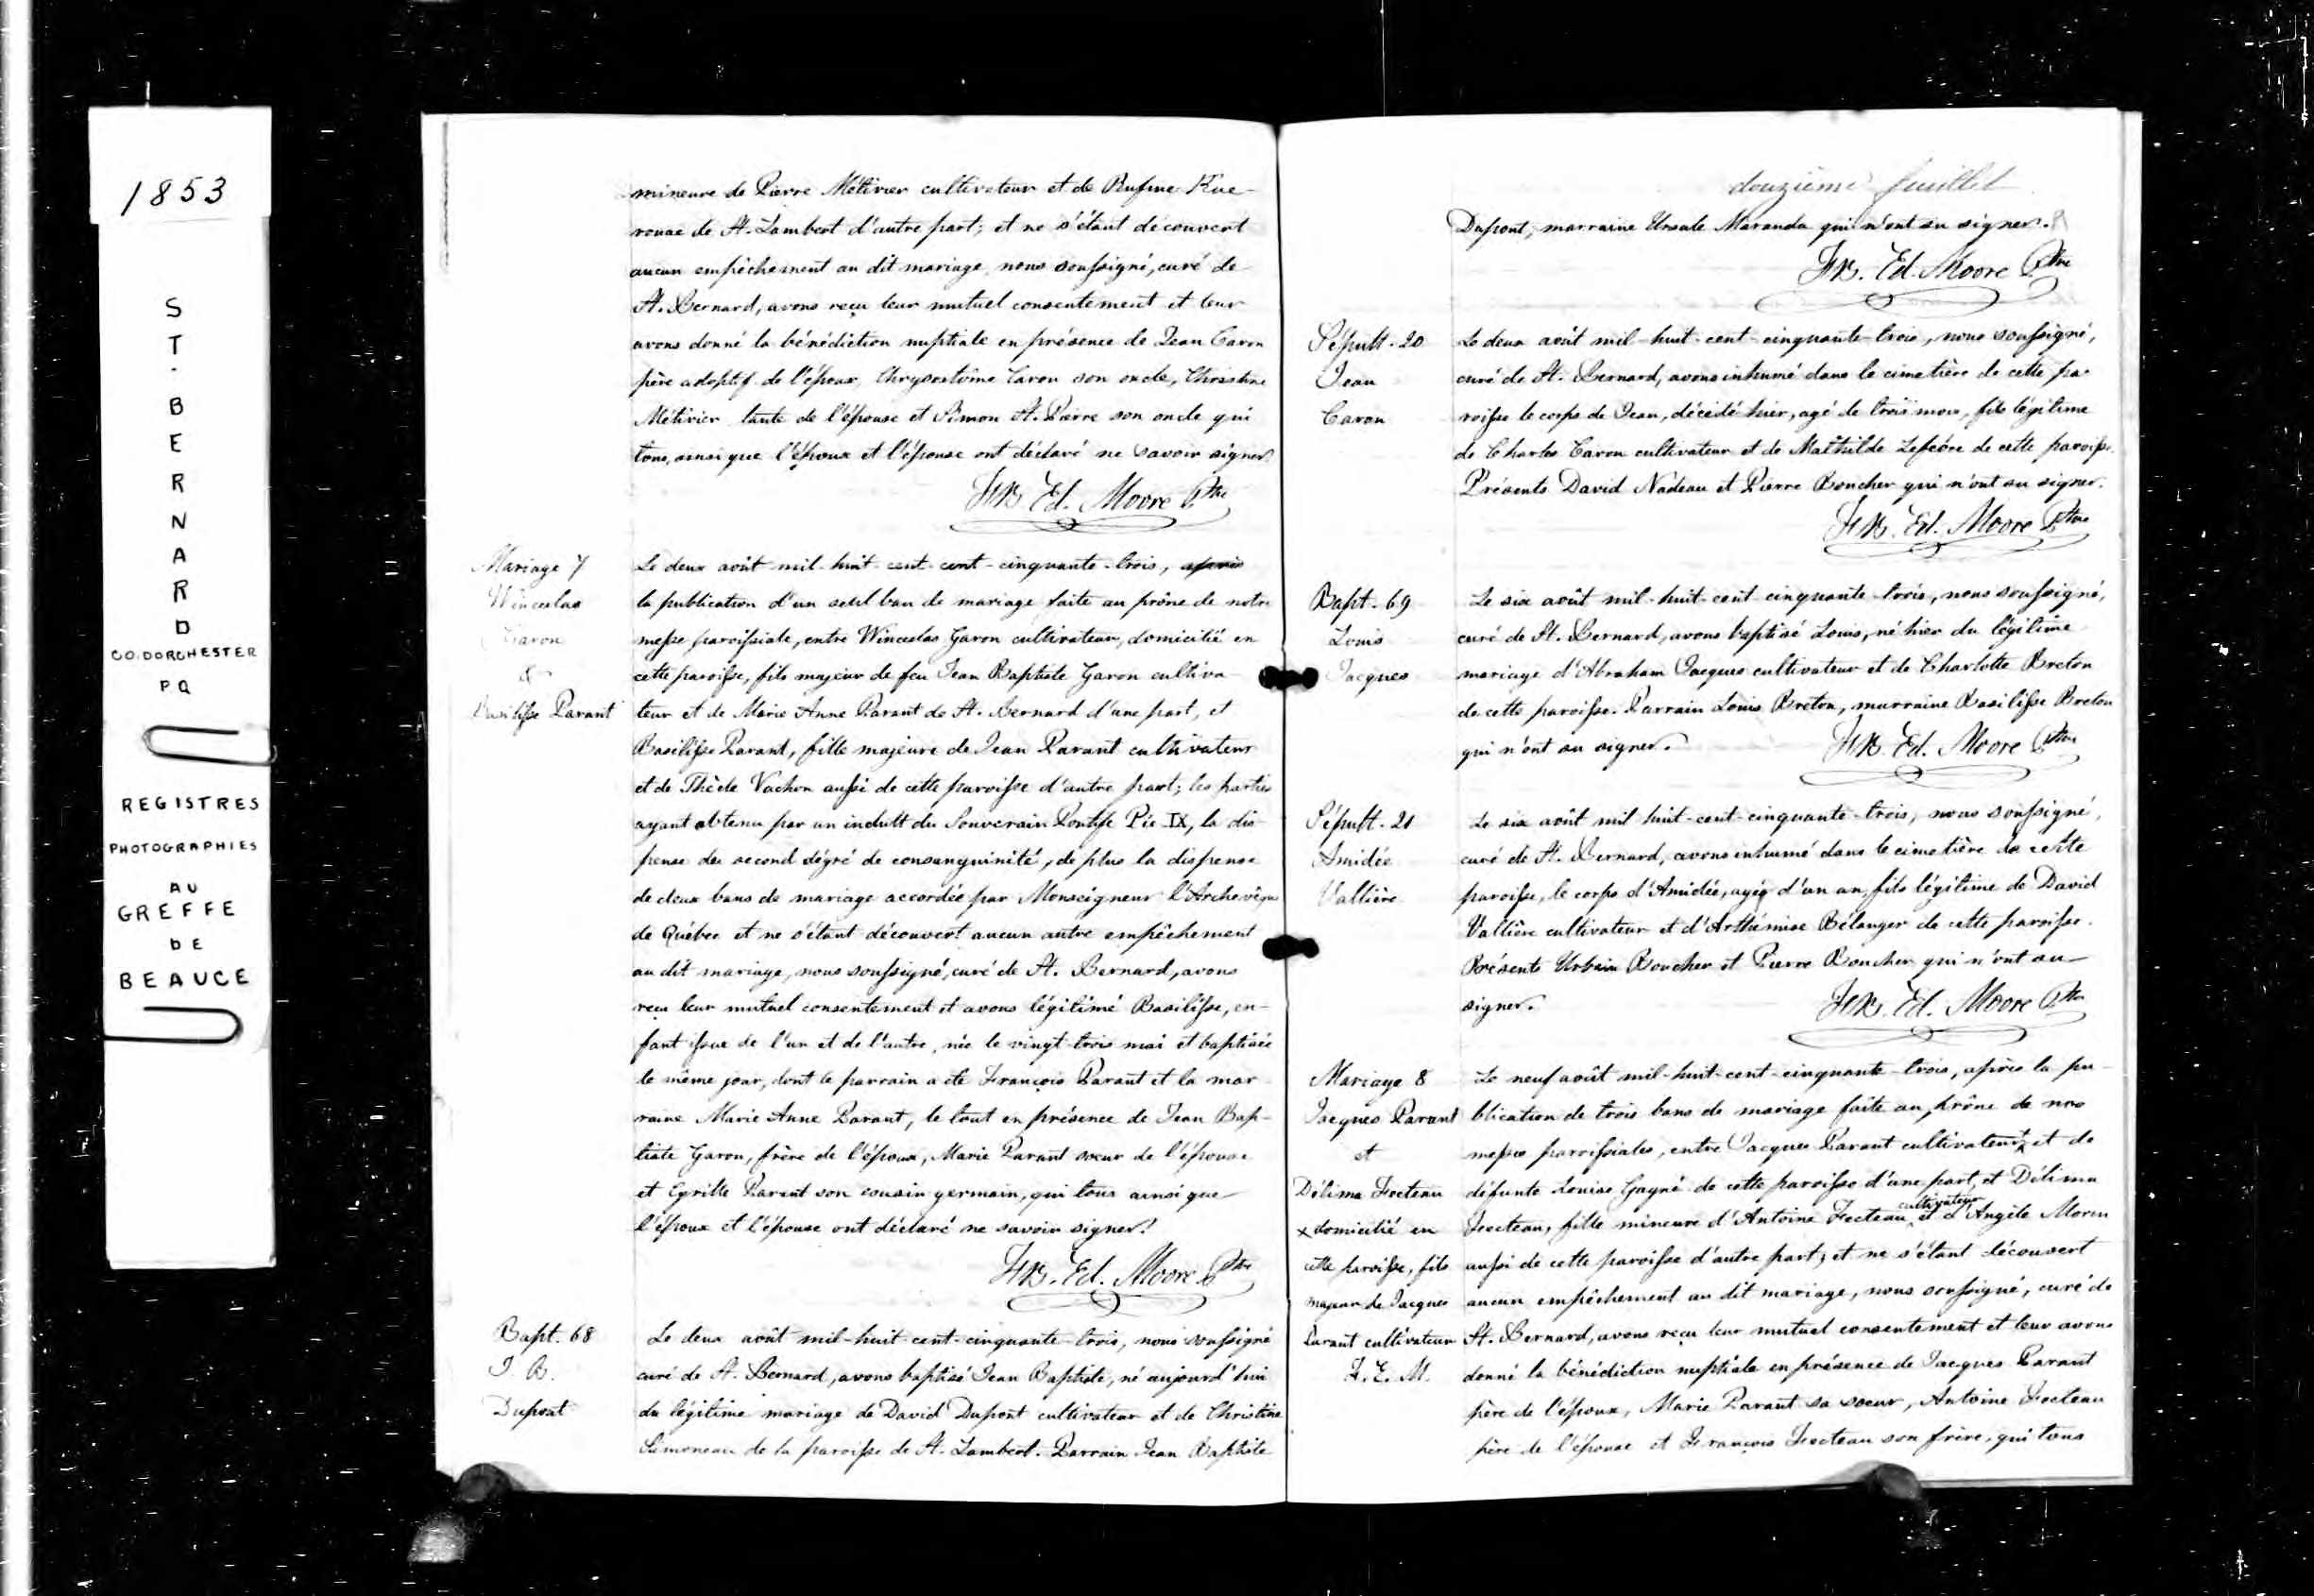 1853
ST. BERNARD
CO. DORCHESTER
P Q
REGISTRES
PHOTOGRAPHIES
AU
GREFFE
DE
BEAUCE
mineure de Pierre Métivier cultivateur et de Rufine Kue-
rouac de St. Lambert d'autre part; et ne s'étant découvert
aucun empêchement au dit mariage, nous soussigné, curé de
St. Bernard, avons reçu leur mutuel consentement et leur
avons donné la bénédiction nuptiale en présence de Jean Caron
père adoptif de l'époux, Chrysostôme Caron son oncle, Christine
Métivier tante de l'épouse et Simon St. Pierre son oncle qui
tous, ainsi que l'époux et l'épouse ont déclaré ne savoir signer.
Frs. Ed. Moore Ptre
Mariage 7
Winceslas
Garon
&
Basilisse Parant
Le deux août mil-huit-cent-cent-cinquante-trois, après
la publication d'un seul ban de mariage faite au prône de notre
messe paroissiale, entre Winceslas Garon cultivateur, domicilié en
cette paroisse, fils majeur de feu Jean Baptiste Garon cultiva-
teur et de Marie Anne Parant de St. Bernard d'une part, et
Basilisse Parant, fille majeure de Jean Parant cultivateur
et de Thècle Vachon aussi de cette paroisse d'autre part; les parties
ayant obtenu par un indult du Souverain Pontife Pie IX, la dis-
pense du second dégré de consanguinité, de plus la dispense
de deux bans de mariage accordée par Monseigneur l'Archevêque
de Québec et ne s'étant découvert aucun autre empêchement
au dit mariage, nous soussigné, curé de St. Bernard, avons
reçu leur mutuel consentement et avons légitimé Basilisse, en-
fant issue de l'un et de l'autre, née le vingt-trois mai et baptisée
le même jour, dont le parrain a été François Parant et la mar-
raine Marie Anne Parant, le tout en présence de Jean Bap-
tiste Garon, frère de l'époux, Marie Parant sœur de l'épouse
et Cyrille Parent son cousin germain, qui tous ainsi que
l'époux et l'épouse ont déclaré ne savoir signer.
Frs. Ed. Moore Ptre
Bapt. 68
J. B.
Dupont
Le deux août mil-huit-cent-cinquante-trois, nous soussigné
curé de St. Bernard, avons baptisé Jean Baptiste, né aujourd'hui
du légitime mariage de David Dupont cultivateur et de Christine
Simoneau de la paroisse de St. Lambert. Parrain Jean Baptiste
douzième feuillet
Dupont, marraine Ursule Maranda qui n'ont su signer.
Frs. Ed. Moore Ptre
Sépult. 20
Jean
Caron
Le deux août mil-huit-cent-cinquante-trois, nous soussigné,
curé de St. Bernard, avons inhumé dans le cimetière de cette pa-
roisse le corps de Jean, décédé hier, agé de trois mois, fils légitime
de Charles Caron cultivateur et de Mathilde Lefebvre de cette paroisse.
Présents David Nadeau et Pierre Boucher qui n'ont su signer.
Frs. Ed. Moore Ptre
Bapt. 69
Louis
Jacques
Le six août mil-huit-cent-cinquante-trois, nous soussigné,
curé de St. Bernard, avons baptisé Louis, né hier du légitime
mariage d'Abraham Jacques cultivateur et de Charlotte Breton
de cette paroisse. Parrain Louis Breton, marraine Basilisse Breton
qui n'ont su signer.
Frs. Ed. Moore Ptre
Sépult. 21
Amidée
Vallière
Le six août mil-huit-cent-cinquante-trois, nous soussigné,
curé de St. Bernard, avons inhumé dans le cimetière de cette
paroisse, le corps d'Amidée, agé d'un an, fils légitime de David
Vallière cultivateur et d'Arthémise Bélanger de cette paroisse.
Présents Urbain Boucher et Pierre Boucher qui n'ont su
signer.
Frs. Ed. Moore Ptre
Mariage 8
Jacques Parant
et
Délima Fecteau
x domicilié en
cette paroisse, fils
majeur de Jacques
Parant cultivateur
F. E. M.
Le neuf août mil-huit-cent-cinquante-trois, après la pu-
blication de trois bans de mariage faite au prône de nos
messes paroissiales, entre Jacques Parant cultivateur x et de
défunte Louise Gagné de cette paroisse d'une part, et Délima
Fecteau, fille mineure d'Antoine Fecteau cultivateur et d'Angèle Morin
aussi de cette paroisse d'autre part; et ne s'étant découvert
aucun empêchement au dit mariage, nous soussigné, curé de
St. Bernard, avons reçu leur mutuel consentement et leur avons
donné la bénédiction nuptiale en présence de Jacques Parant
père de l'époux, Marie Parant sa soeur, Antoine Fecteau
père de l'épouse et François Fecteau son frère, qui tous